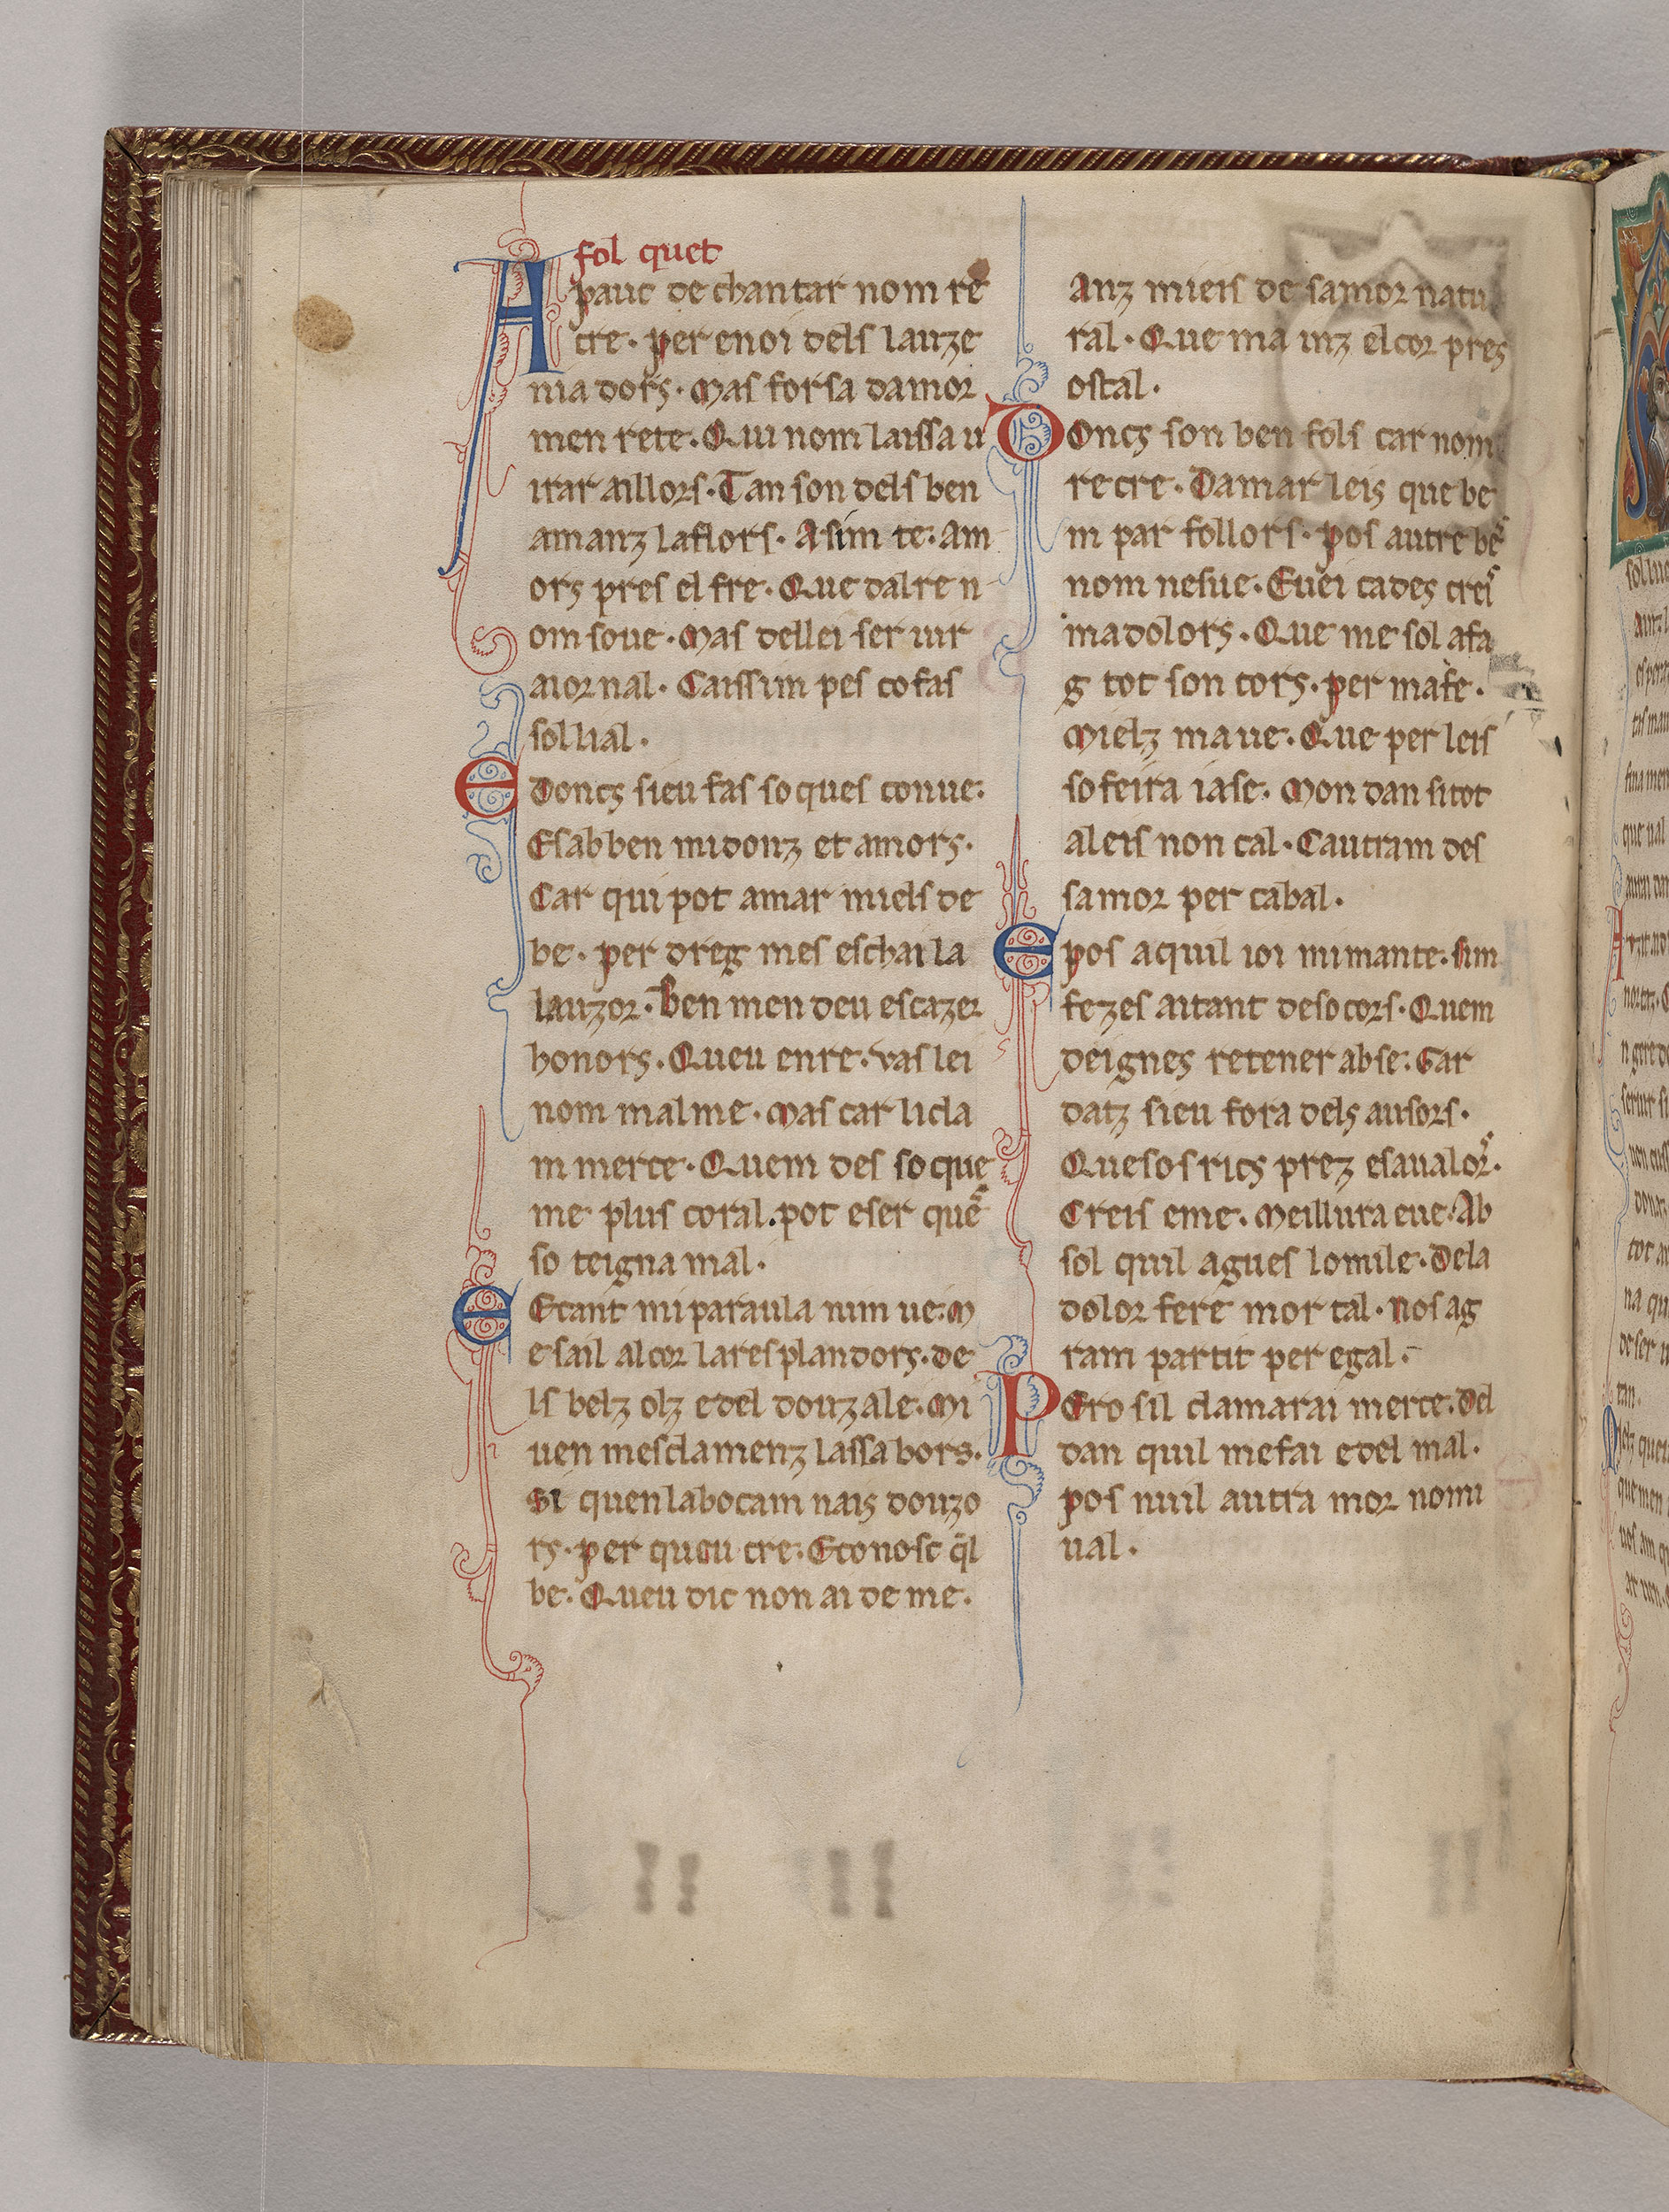 fol quet
A pauc de chantar nom re
cre· per enoi dels lauze
niadors· Mas forsa damor
men rete· Qui nom laissa u
irar aillors· Tan son dels ben
amanz laflors· Asim te· am
ors pres el fre· Que dalre n
om soue· Mas dellei ser uir
aiornal· Caissim pes co fas
sol lial·
E Doncs sieu fas so ques conue·
Esab ben midonz et amors·
Car qui pot amar miels de
be· per dreg mes eschai la
lauzor· Ben men deu escazer
honors· Queu enre· vas lei
nom malme· Mas car li cla
m merce· Quem des so que
me plus coral· pot eser que͂
so teigna mal·
E Ecant mi paraula nim ue· M
e sail al cor la resplandors· de
ls belz olz e del douz ale· Mi
uen mesclamenz lassabors·
Si quen la bocam nais douzo
rs· per queu cre· Econosc q̄l
be· Queu dic non ai de me·
Anz mieis de samor natu
ral· Que ma inz el cor pres
ostal·
D Oncs son ben fols car nom
recre· Damar leis que be
m par follors· pos autre be͂
nom nesue· Euei cades creis
ma dolors· Que me sol afa
g tot son cors· per mafe·
Mielz ma ue· Que per leis
sofeira iase· Mon dan si tot
a leis non cal· Cautram des
samor per cabal·
E pos aquil ioi mi mante· Sim
fezes aitant de socors· Quem
deignes retener ab se· Gar
datz sieu fora dels ausors·
Que sos rics prez e sa ualors·
Creis e me· Meillura e ue· Ab
sol quil agues lo mile· De la
dolor fere mortal· Nos ag
ram partit per egal·
P Ero sil clamarai merce· Del
dan quil me fai e del mal·
pos nuil autra mor nomi
ual·